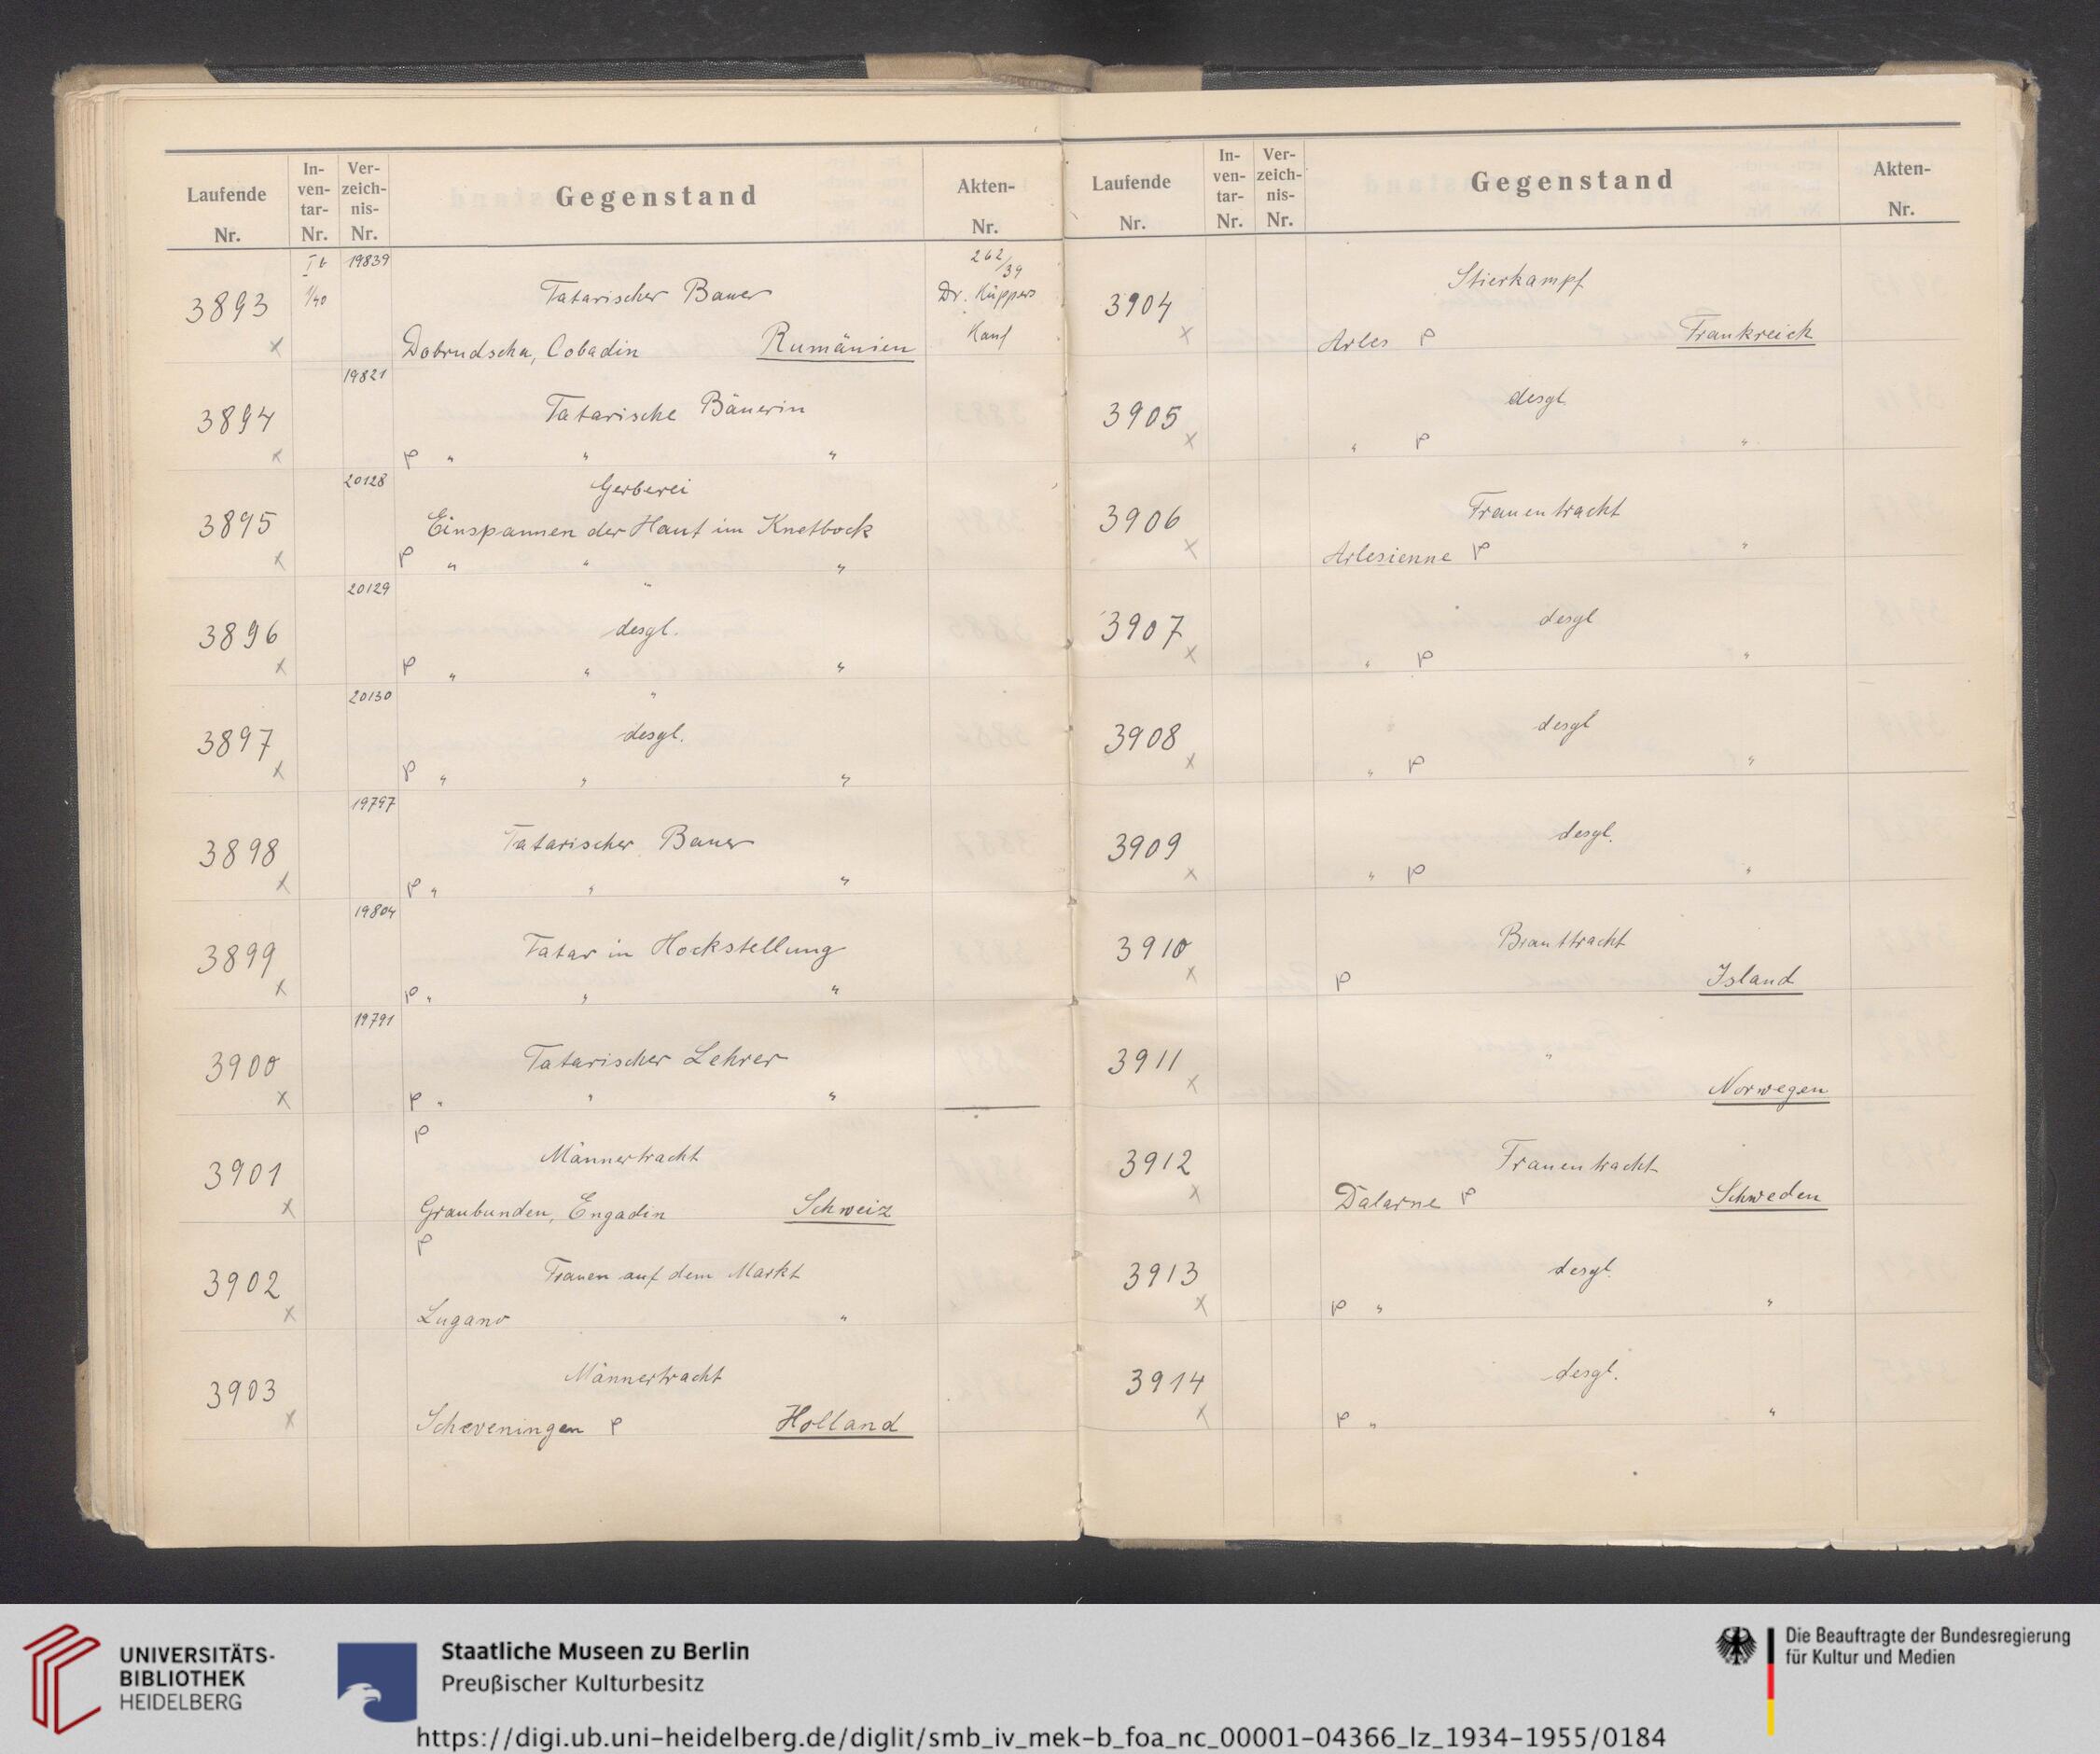 Laufende Nr. In-ven-tar-Nr. Ver-zeich-nis-Nr. Gegenstand Akten-Nr.
I b 19839 262/39
3893 1/40 Tatarischer Bauer Dr. Küppers
x Dobrudscha, Cobadin Rumänien Kauf
19821
3894 Tatarische Bäuerin
x P " " "
20128 Gerberei
3895 Einspannen der Haut im Knetbock
x P " " "
20129 "
3896 desgl.
x P " " "
20130 "
3897 desgl.
x P " " "
19797
3898 Tatarischer Bauer
x P " " "
19804
3899 Tatar in Hockstellung
x P " " "
19791
3900 Tatarischer Lehrer
x P " " "
P
3901 Männertracht
x Graubunden, Engadin Schweiz
P
3902 Frauen auf dem Markt
x Lugano "
3903 Männertracht
x Scheveningen P Holland
Laufende Nr. In-ven-tar-Nr. Ver-zeich-nis-Nr. Gegenstand Akten-Nr.
3904 Stierkampf
x Arles P Frankreich
3905 desgl.
x " P "
3906 Frauentracht
x Arlesienne P "
3907 desgl
x " P "
3908 desgl
x " P "
3909 desgl.
x " P "
3910 Brauttracht
x P Island
3911 "
x Norwegen
3912 Frauentracht
x Dalarne P Schweden
3913 desgl.
x P " "
3914 desgl.
x P " "
UNIVERSITÄTS-
BIBLIOTHEK
HEIDELBERG
Staatliche Museen zu Berlin
Preußischer Kulturbesitz
Die Beauftragte der Bundesregierung
für Kultur und Medien
https://digi.ub.uni-heidelberg.de/diglit/smb_iv_mek-b_foa_nc_00001-04366_lz_1934-1955/0184